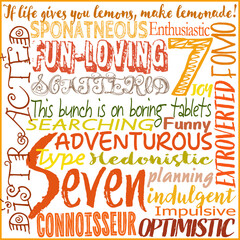 If life gives you lemons, make lemonade!
SPONATNEOUS
Enthusiastic
DISTRACTED
FUN-LOVING
7
FOMO
SCATTERED
JOY
This bunch is on boring tablets
SEARCHING
Funny
EXTROVERTED
ADVENTUROUS
Type
Hedonistic
Seven
planning
indulgent
Impulsive
CONNOISSEUR
OPTIMISTIC